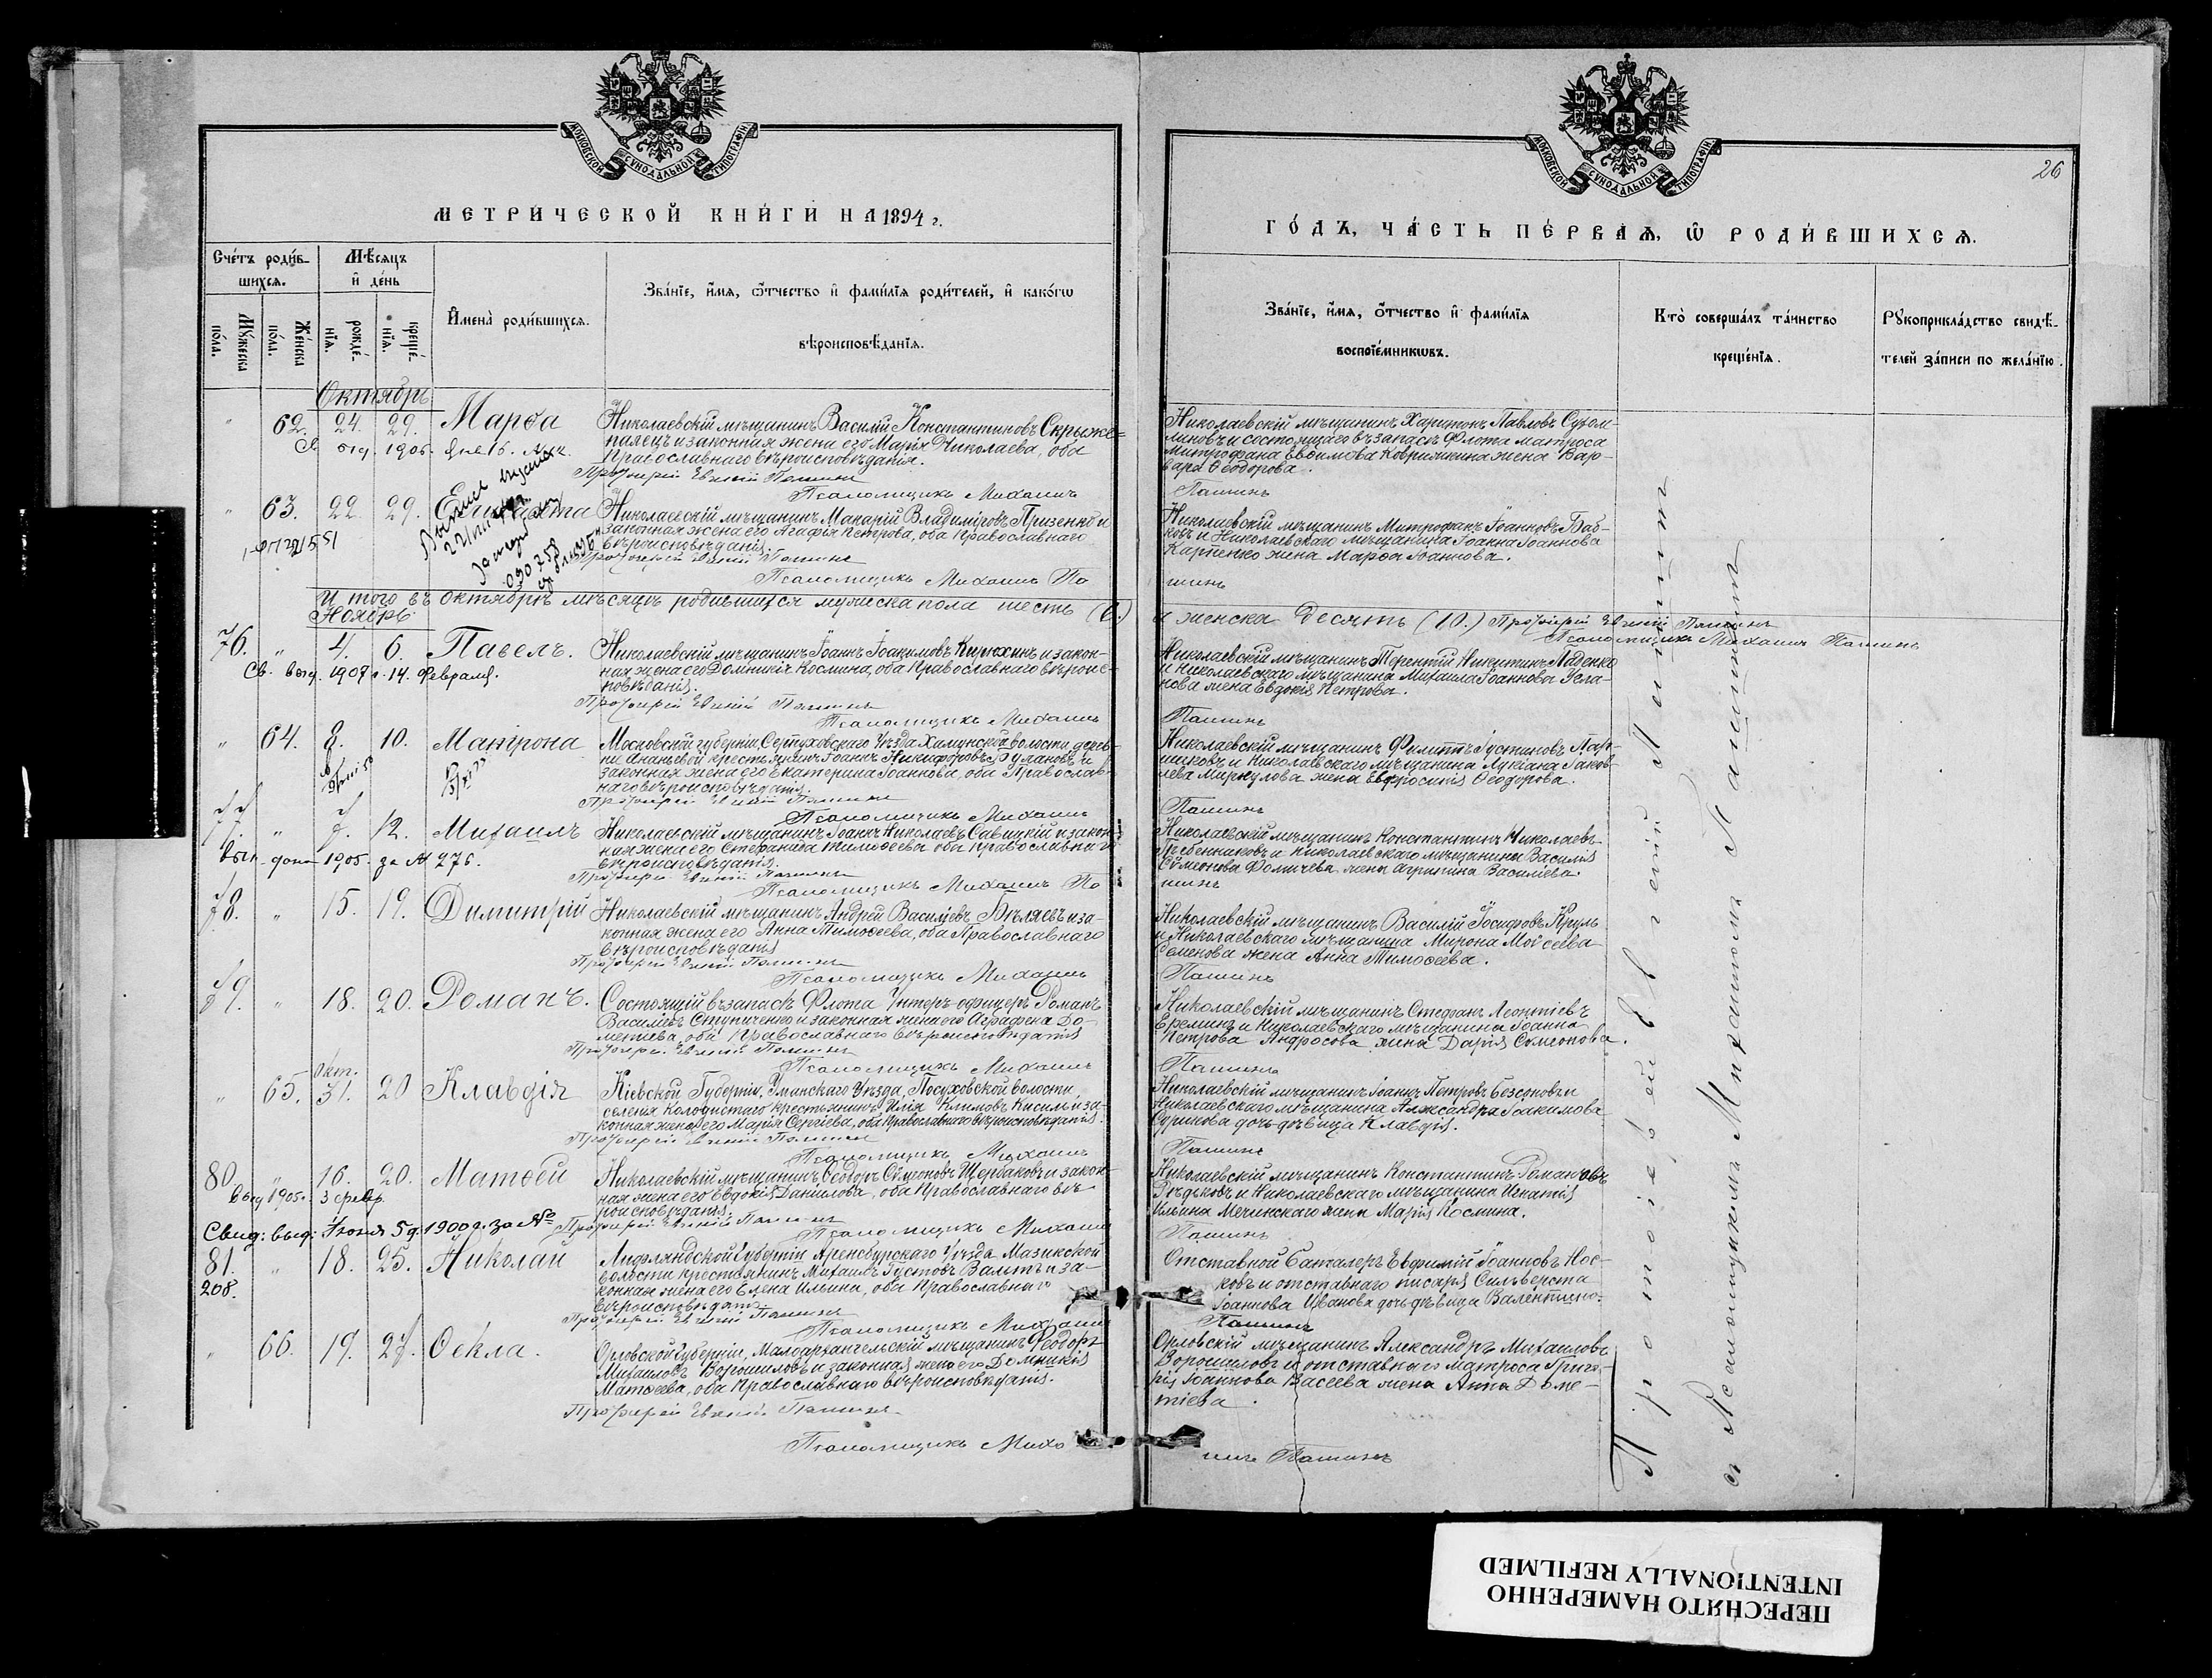 МОСКОВСКОЙ СѴНОДАЛЬНОЙ ТИПОГРАФІИ
МЕТРИ́ЧЕСКОЙ КНИ́ГИ НА 1894 г.
Сче́тъ роди́в-
шихсѧ.
Мѣ́сѧцъ
и҆ де́нь
Мꙋ́жеска по́ла.
Же́нска по́ла.
рожде́-
нїѧ.
креще́-
нїѧ.
И҆мена̀ роди́вшихсѧ.
Зва́нїе, и҆́мѧ, ѻ҆́тчество и҆ фами́лїѧ роди́телей, и҆ како́гѡ
вѣроисповѣ́данїѧ.
Октябрь
62. 24. 29. Марѳа
Николаевскій мѣщанинъ Василій Константиновъ Скрыже-
палецъ и законная жена его Марія Николаева, оба
Православнаго вѣроисповѣданія.
Протоіерей Евгеній Пашинъ
Псаломщикъ Михаилъ
63. 22 29. Елисавета
Николаевскій мѣщанинъ Макарій Владиміровъ Призенко и
законная жена его Агафія Петрова, оба Православнаго
вѣроисповѣданія.
Протоіерей Евгеній Пашинъ
Псаломщикъ Михаилъ Па
И того въ Октябрѣ мѣсяцѣ родившихся мужеска пола шесть (6.)
Ноябрь
76. " 4. 6. Павелъ.
Св. выд. 1907 г. 14. Февраля.
Николаевскій мѣщанинъ Іоаннъ Іоакимовъ Кирюхинъ и закон-
ная жена его Домникія Космина, оба Православнаго вѣроис-
повѣданія.
Протоіерей Евгеній Пашинъ
Псаломщикъ Михаилъ
" 64. 8. 10. Матрона
Московской губерніи, Серпуховскаго Уѣзда Хатунской волости, дерев-
ни Ананьевой крестьянинъ Іоаннъ Никифоровъ Гулановъ и
законная жена его Екатерина Іоаннова, оба Православ-
наго вѣроисповѣданія.
Протоіерей Евгеній Пашинъ
Псаломщикъ Михаилъ
77. " 7. 12. Михаилъ
1905. за № 276.
Николаевскій мѣщанинъ Іоаннъ Николаевъ Савицкій и закон-
ная жена его Стефанида Тимоѳеева оба Православнаго
вѣроисповѣданія.
Протоіерей Евгеній Пашинъ
Псаломщикъ Михаилъ Па
78. " 15. 19. Димитрій
Николаевскій мѣщанинъ Андрей Васильевъ Бѣляевъ и за-
конная жена его Анна Тимоѳеева, оба Православнаго
вѣроисповѣданія
Протоіерей Евгеній Пашинъ
Псаломщикъ Михаилъ
79. " 18. 20. Романъ.
Состоящій въ запасѣ Флота Унтеръ-офицеръ Романъ
Васильевъ Ступниченко и законная жена его Аграфена До-
метіева, оба Православнаго вѣроисповѣданія
Протоіерей Евгеній Пашинъ
Псаломщикъ Михаилъ
Окт.
" 65. 31. 20 Клавдія
Кіевской Губерніи, Уманскаго Уѣзда, Посуховской волости,
селенія Колодистаго крестьянинъ Илія Климовъ Кисиль и за-
конная жена его Марія Сергіева, оба Православнаго вѣроисповѣданія.
Протоіерей Евгеній Пашинъ
Псаломщикъ Михаилъ
80. " 16. 20. Матѳей
выд. 1905. 3 февр.
Николаевскій мѣщанинъ Ѳеодоръ Сѵмеоновъ Щербаковъ и закон-
ная жена его Евдокія Данилова, оба Православнаго вѣ-
роисповѣданія.
Свид: выд: Іюня 5 д. 1900 г. за №
Протоіерей Евгеній Пашинъ
Псаломщикъ Михаилъ
81. " 18. 25. Николай
208.
Лифляндской Губерніи Аренсбургскаго Уѣзда Мазикской
волости крестьянинъ Михаилъ Густовъ Вальтъ и за-
конная жена его Елена Ильина, оба Православнаго
вѣроисповѣданія
Протоіерей Евгеній Пашинъ
Псаломщикъ Михаилъ
" 66. 19. 27. Ѳекла.
Орловской Губерніи, Малоархангельскій мѣщанинъ Ѳеодоръ
Михаиловъ Ворошиловъ и законная жена его Домникія
Матѳеева, оба Православнаго вѣроисповѣданія.
Протоіерей Евгеній Пашинъ
Псаломщикъ Миха
МОСКОВСКОЙ СѴНОДАЛЬНОЙ ТИПОГРАФІИ
26
ГО́ДЪ, ЧА́СТЬ ПЕ́РВАѦ, Ѡ҆ РОДИ́ВШИХСѦ.
Зва́нїе, и҆́мѧ, ѻ҆́тчество и҆ фами́лїѧ
воспрїе́мникѡвъ.
Кто̀ соверша́лъ та́инство
креще́нїѧ.
Рꙋкоприкла́дство свидѣ́-
телей за́писи по жела́нїю.
Николаевскій мѣщанинъ Харитонъ Павловъ Сухом-
линовъ и состоящаго въ запасѣ Флота матроса
Митрофана Евѳимова Коврижкина жена Вар-
вара Ѳеодорова.
Пашинъ
Николаевскій мѣщанинъ Митрофанъ Іоанновъ Баб-
ковъ и Николаевскаго мѣщанина Іоанна Іоаннова
Карпенко жена Марѳа Іоаннова.
шинъ
и женска десять (10.) Протоіерей Евгеній Пашинъ
Псаломщикъ Михаилъ Пашинъ
Николаевскій мѣщанинъ Терентій Никитинъ Паденко
и Николаевскаго мѣщанина Михаила Іоаннова Усла-
нова жена Евдокія Петрова.
Пашинъ
Николаевскій мѣщанинъ Филиппъ Іустиновъ Пар-
шиковъ и Николаевскаго мѣщанина Лукіана Іаков-
лева Миркулова жена Евфросинія Ѳеодорова.
Пашинъ
Николаевскій мѣщанинъ Константинъ Николаевъ
Гребенниковъ и Николаевскаго мѣщанина Василія
Сѵмеонова Фомичева жена Агрипина Василіева.
шинъ
Николаевскій мѣщанинъ Василій Іосифовъ Круль
и Николаевскаго мѣщанина Мирона Моѵсеева
Семенова жена Анна Тимоѳеева.
Пашинъ
Николаевскій мѣщанинъ Стефанъ Леонтіевъ
Ереминъ и Николаевскаго мѣщанина Іоанна
Петрова Андросова жена Дарія Сѵмеонова.
Пашинъ
Николаевскій мѣщанинъ Іоаннъ Петровъ Безсоновъ и
Николаевскаго мѣщанина Александра Іоакимова
Сурикова дочь дѣвица Клавдія.
Пашинъ
Николаевскій мѣщанинъ Константинъ Романовъ
Рѣдьковъ и Николаевскаго мѣщанина Игнатія
Ильина Мечинскаго жена Марія Космина.
Пашинъ
Отставной Баталеръ Евфимій Іоанновъ Нос-
ковъ и отставнаго писаря Сильверста
Іоаннова Иванова дочь дѣвица Валентина.
Пашинъ
Орловскій мѣщанинъ Александръ Михаиловъ
Ворошиловъ и отставнаго матроса Григо-
рія Іоаннова Васеева жена Анна Доме-
тіева.
илъ Пашинъ
Протоіерей Евгеній Пашинъ
съ Псаломщикомъ Михаиломъ Пашинымъ
ПЕРЕСНЯТО НАМЕРЕННО
INTENTIONALLY REFILMED